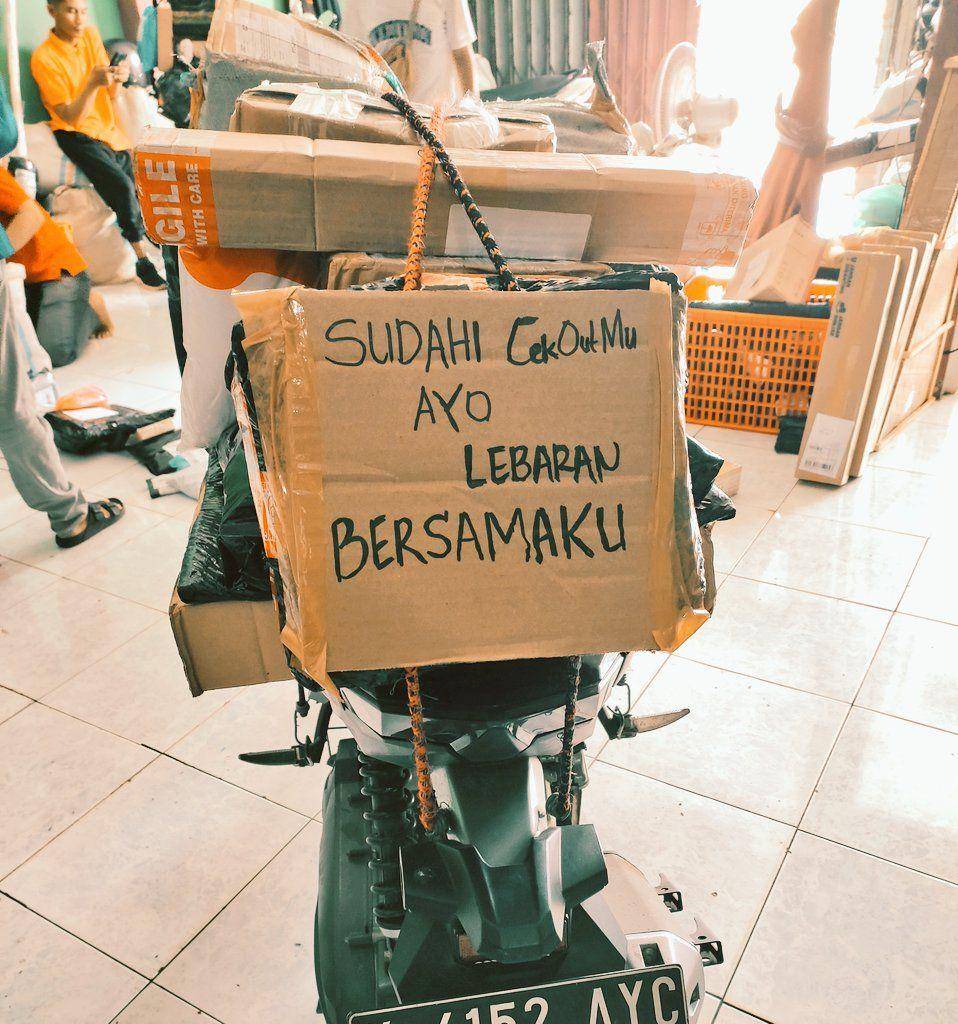 GILE
WITH CARE
SUDAHI CekOutMu
AYO
LEBARAN
BERSAMAKU
6152 AYC